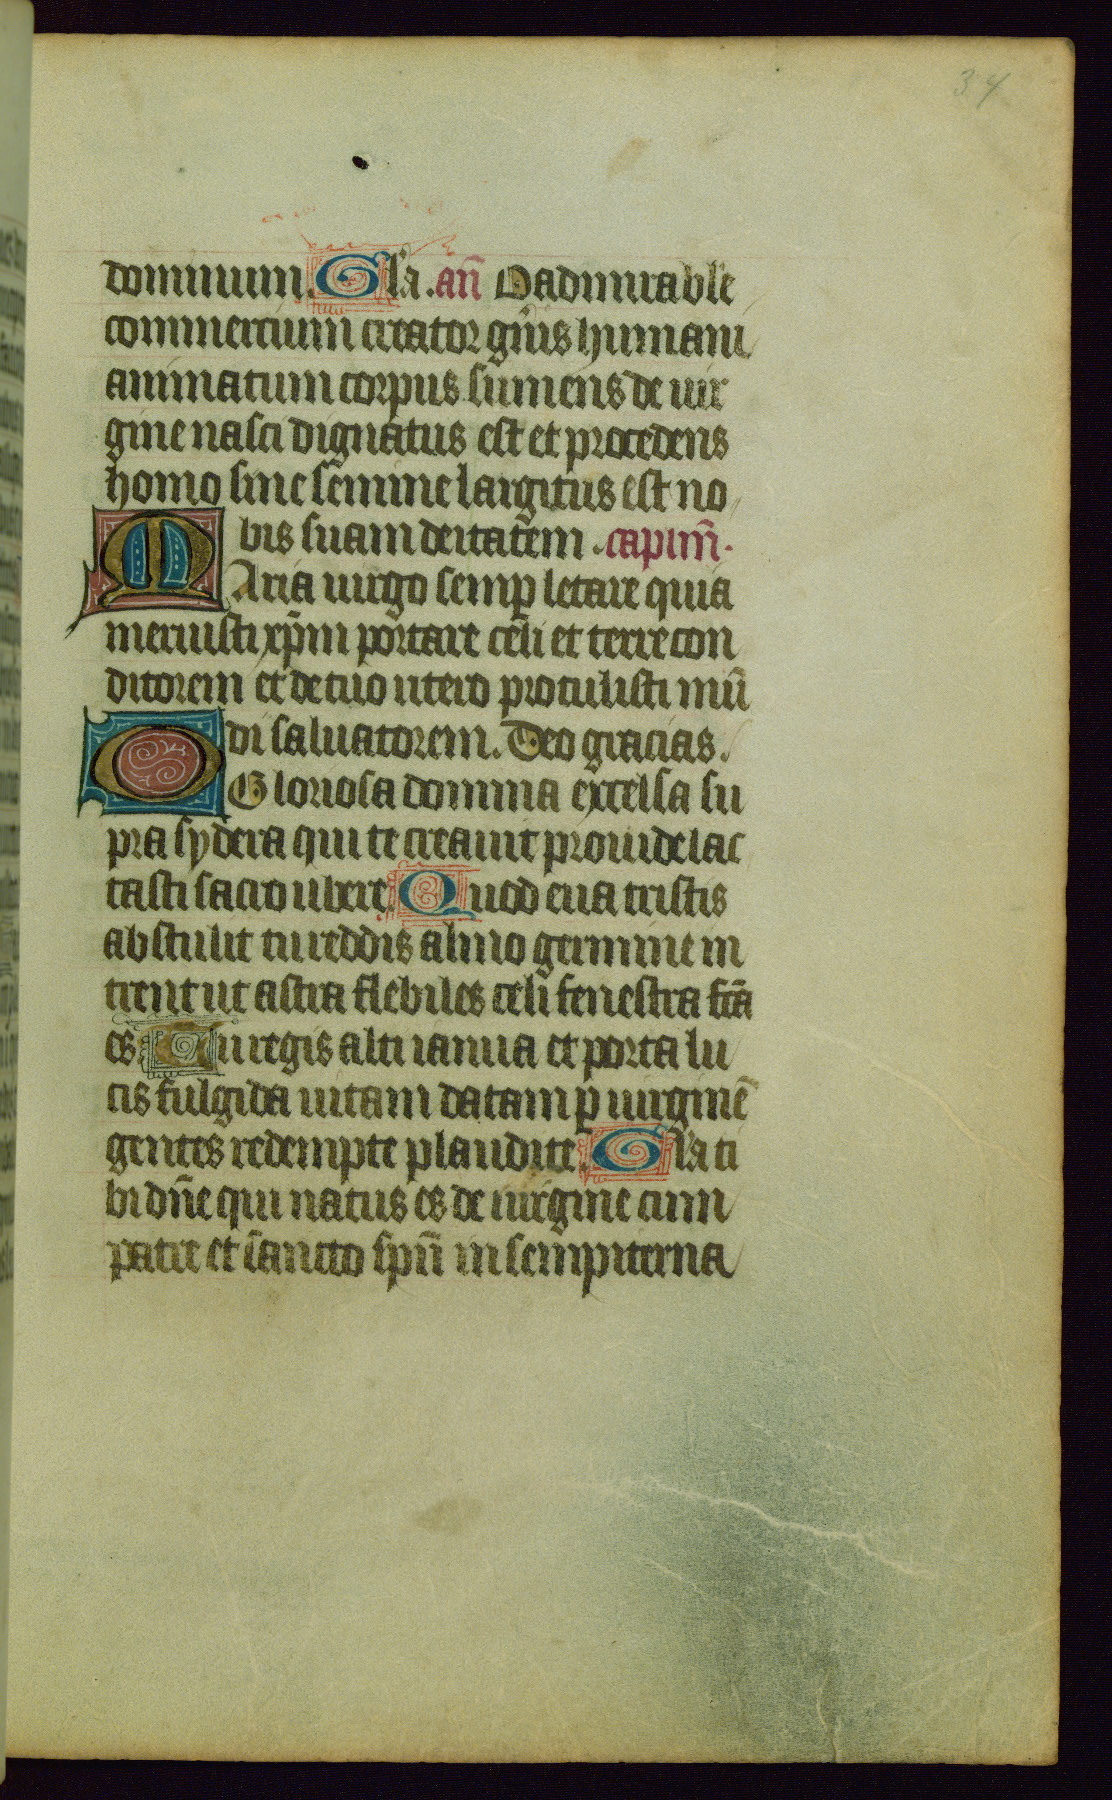 34
dominum. Gl'a. an̄ O admirab'le
commercium creator gn̄is humani
animatum corpus sumens de uir
gine nasci dignatus est et procedens
homo sine semine largitus est no
bis suam deitatem. capl'm̄.
Maria uirgo semp̱ letare quia
meruisti xp̄m portare celi et terre con
ditorem et de tuo utero protulisti mū
di saluatorem. Deo gracias.
O Gloriosa domina excelsa su
pra sydera qui te creauit prouide lac
tasti sacro ubere. Quod eua tristis
abstulit tu reddis almo germine in
trent ut astra flebiles celi fenestra fc̄a
es. Tu regis alti ianua et porta lu
cis fulgida uitam datam p̱ uirginē
gentes redempte plaudite. Gl'a ti
bi dn̄e qui natus es de uirgine cum
patre et sancto spū in sempiterna